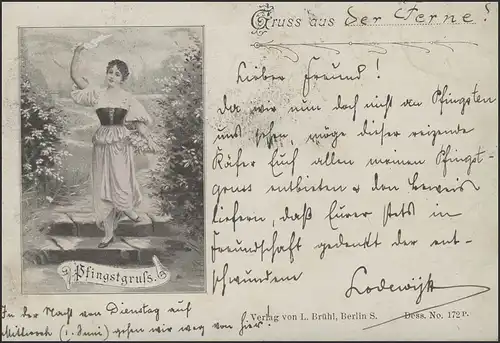 Gruss aus der Ferne!
Lieber Freund!
Da wir nun doch nicht an Pfingsten
uns sehen, möge dieser reizende
Käfer Euch allen meinen Pfingst-
gruss entbieten & den Beweis
liefern, daß Eurer stets in
Freundschaft gedenkt der ent-
schwundene
Lodewijk
Pfingstgruss.
In der Nacht von Dienstag auf
Mittwoch (1. Juni) gehen wir weg von hier!
Verlag von L. Brühl, Berlin S.
Dess. No. 172 P.